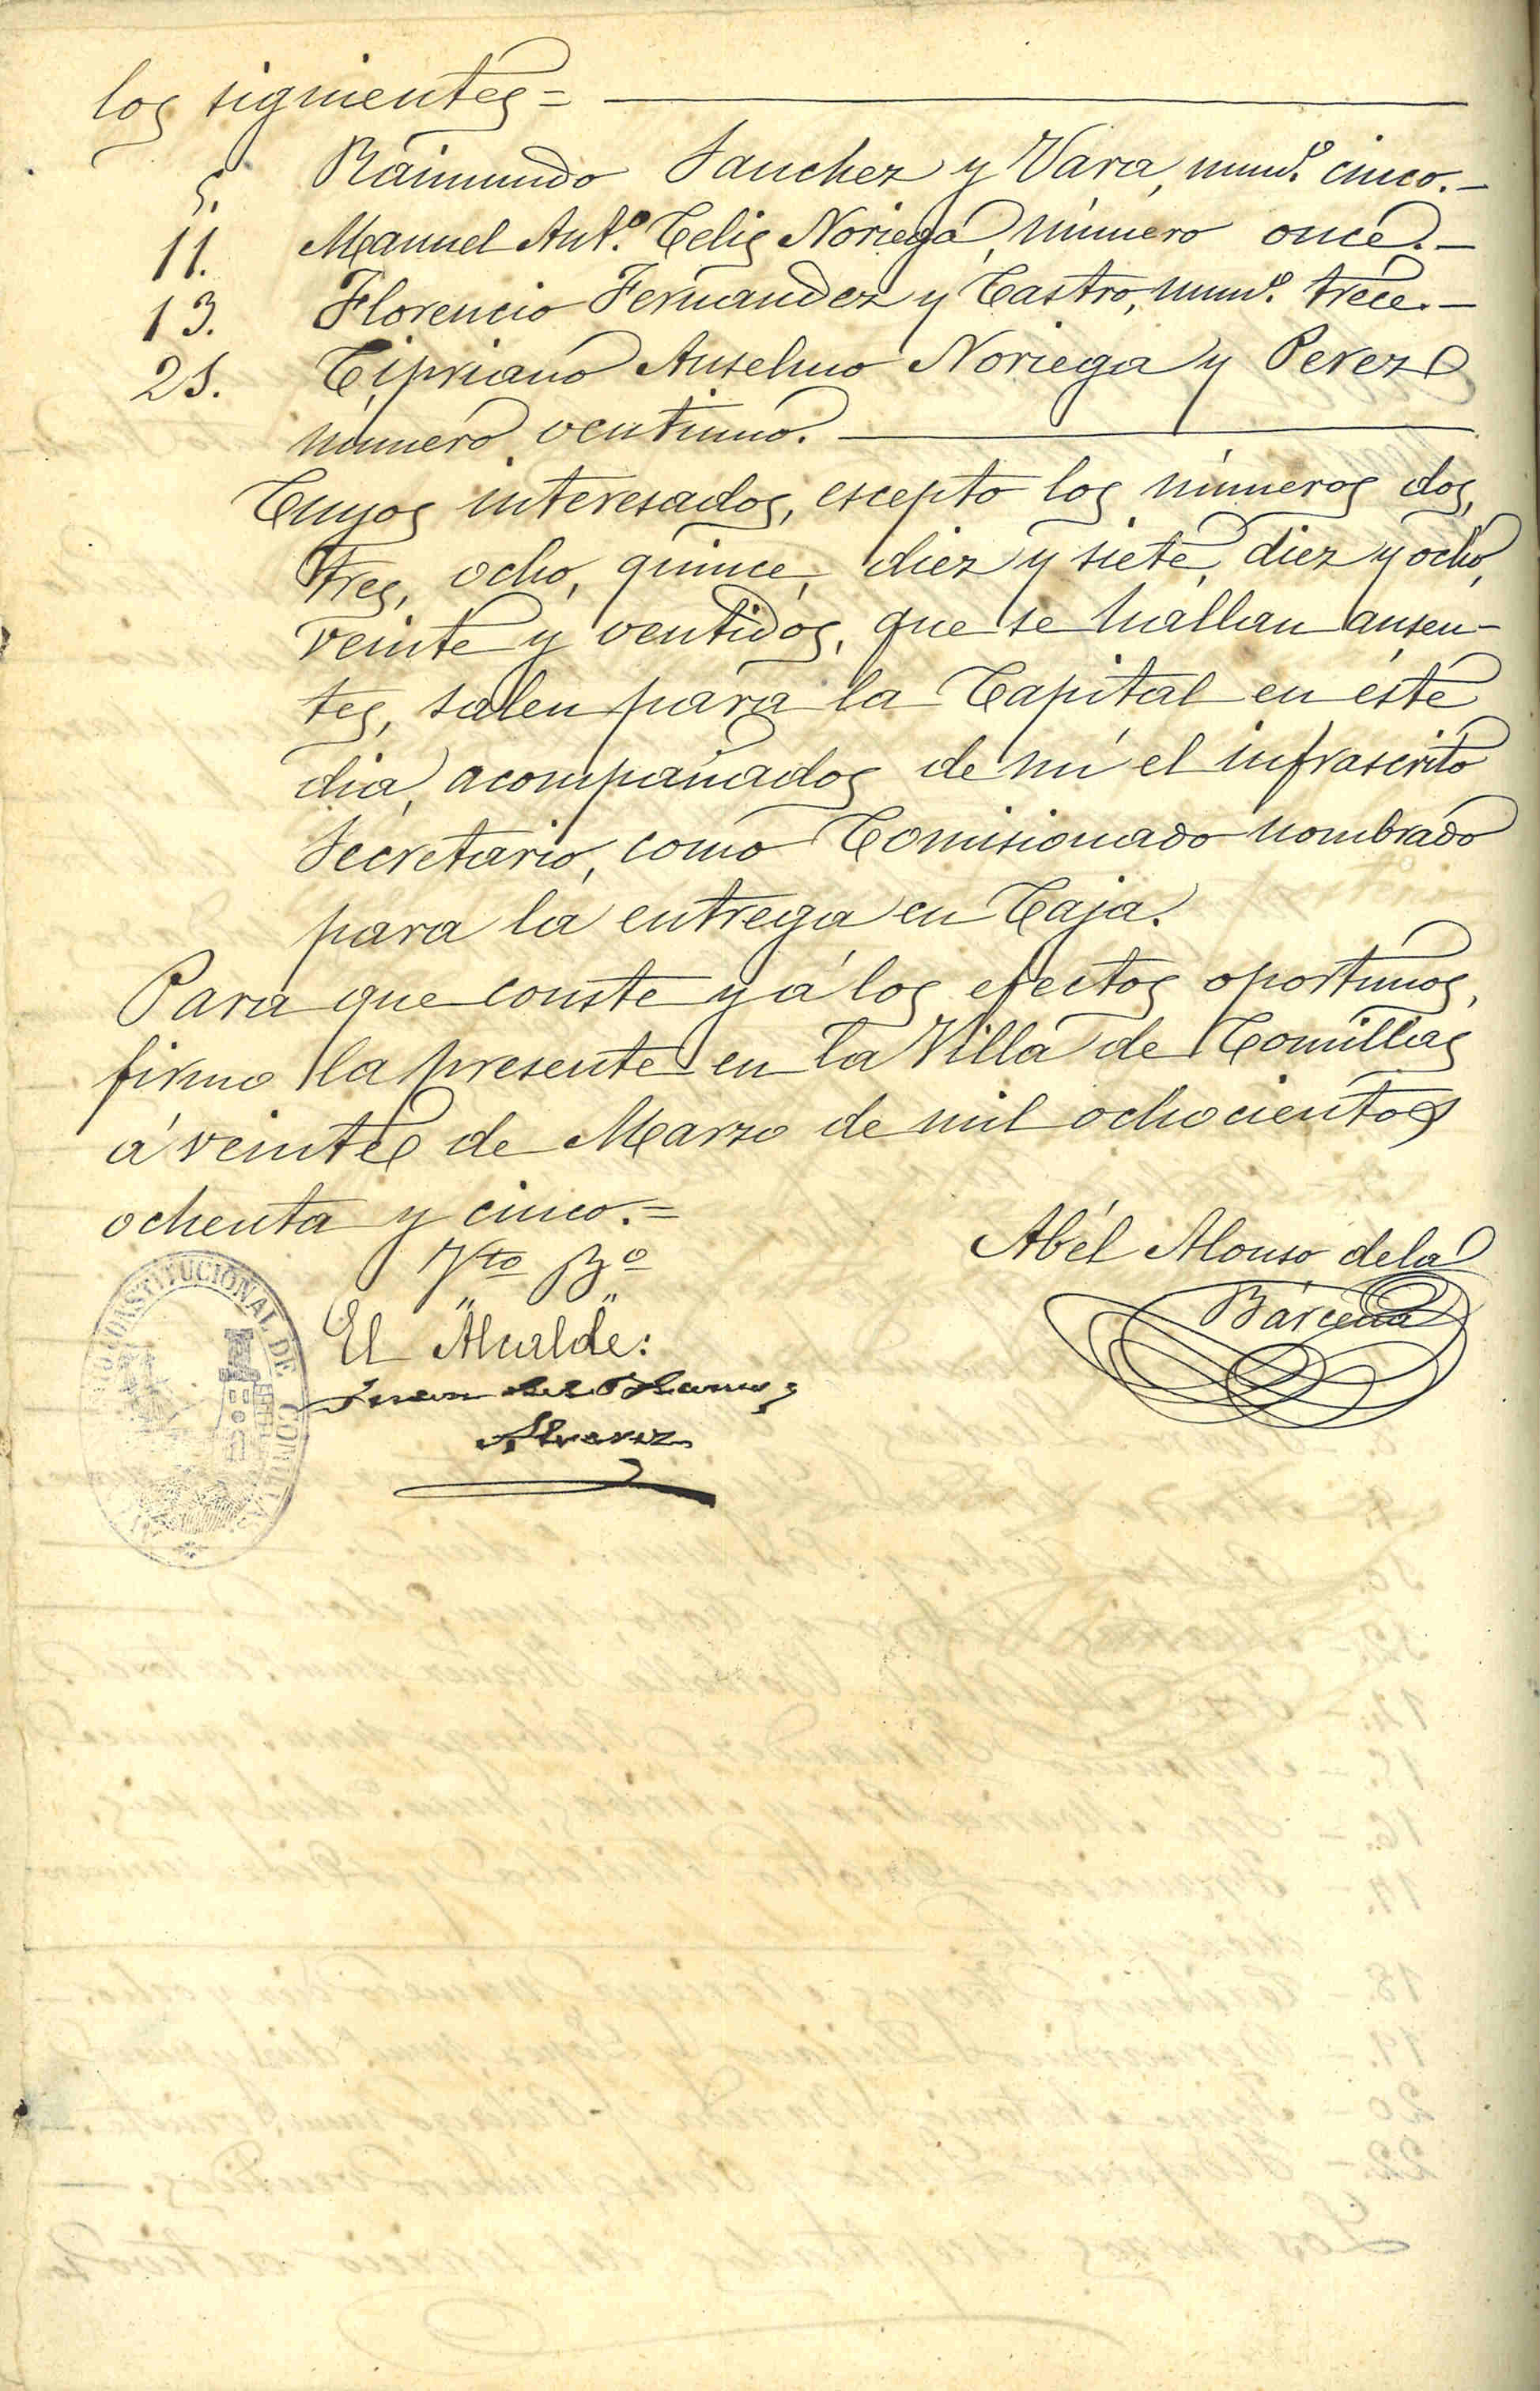 los siguientes=
5. Raimundo Sanchez y Vara, numº. cinco.-
11. Manuel Antº. Celis Noriega, número once.-
13. Florencio Fernandez y Castro, numº. trece.-
21. Cipriano Anselmo Noriega y Perez
número ventiuno.
Cuyos interesados, escepto los números dos,
tres, ocho, quince, diez y siete, diez y ocho,
veinte y ventidos, que se hallan ausen-
tes, salen para la Capital en éste
dia, acompañados de mí el infrascrito
Secretario, como Comisionado nombrado
para la entrega en Caja.
Para que conste y á los efectos oportunos,
firmo la presente en la Villa de Comillas
á veinte de Marzo de mil ochocientos
ochenta y cinco.=
Vto Bº
El Alcalde:
Abél Alonso de la
Bárcena
Juan del
Alvarez
CONSTITUCIONAL DE COMILLAS